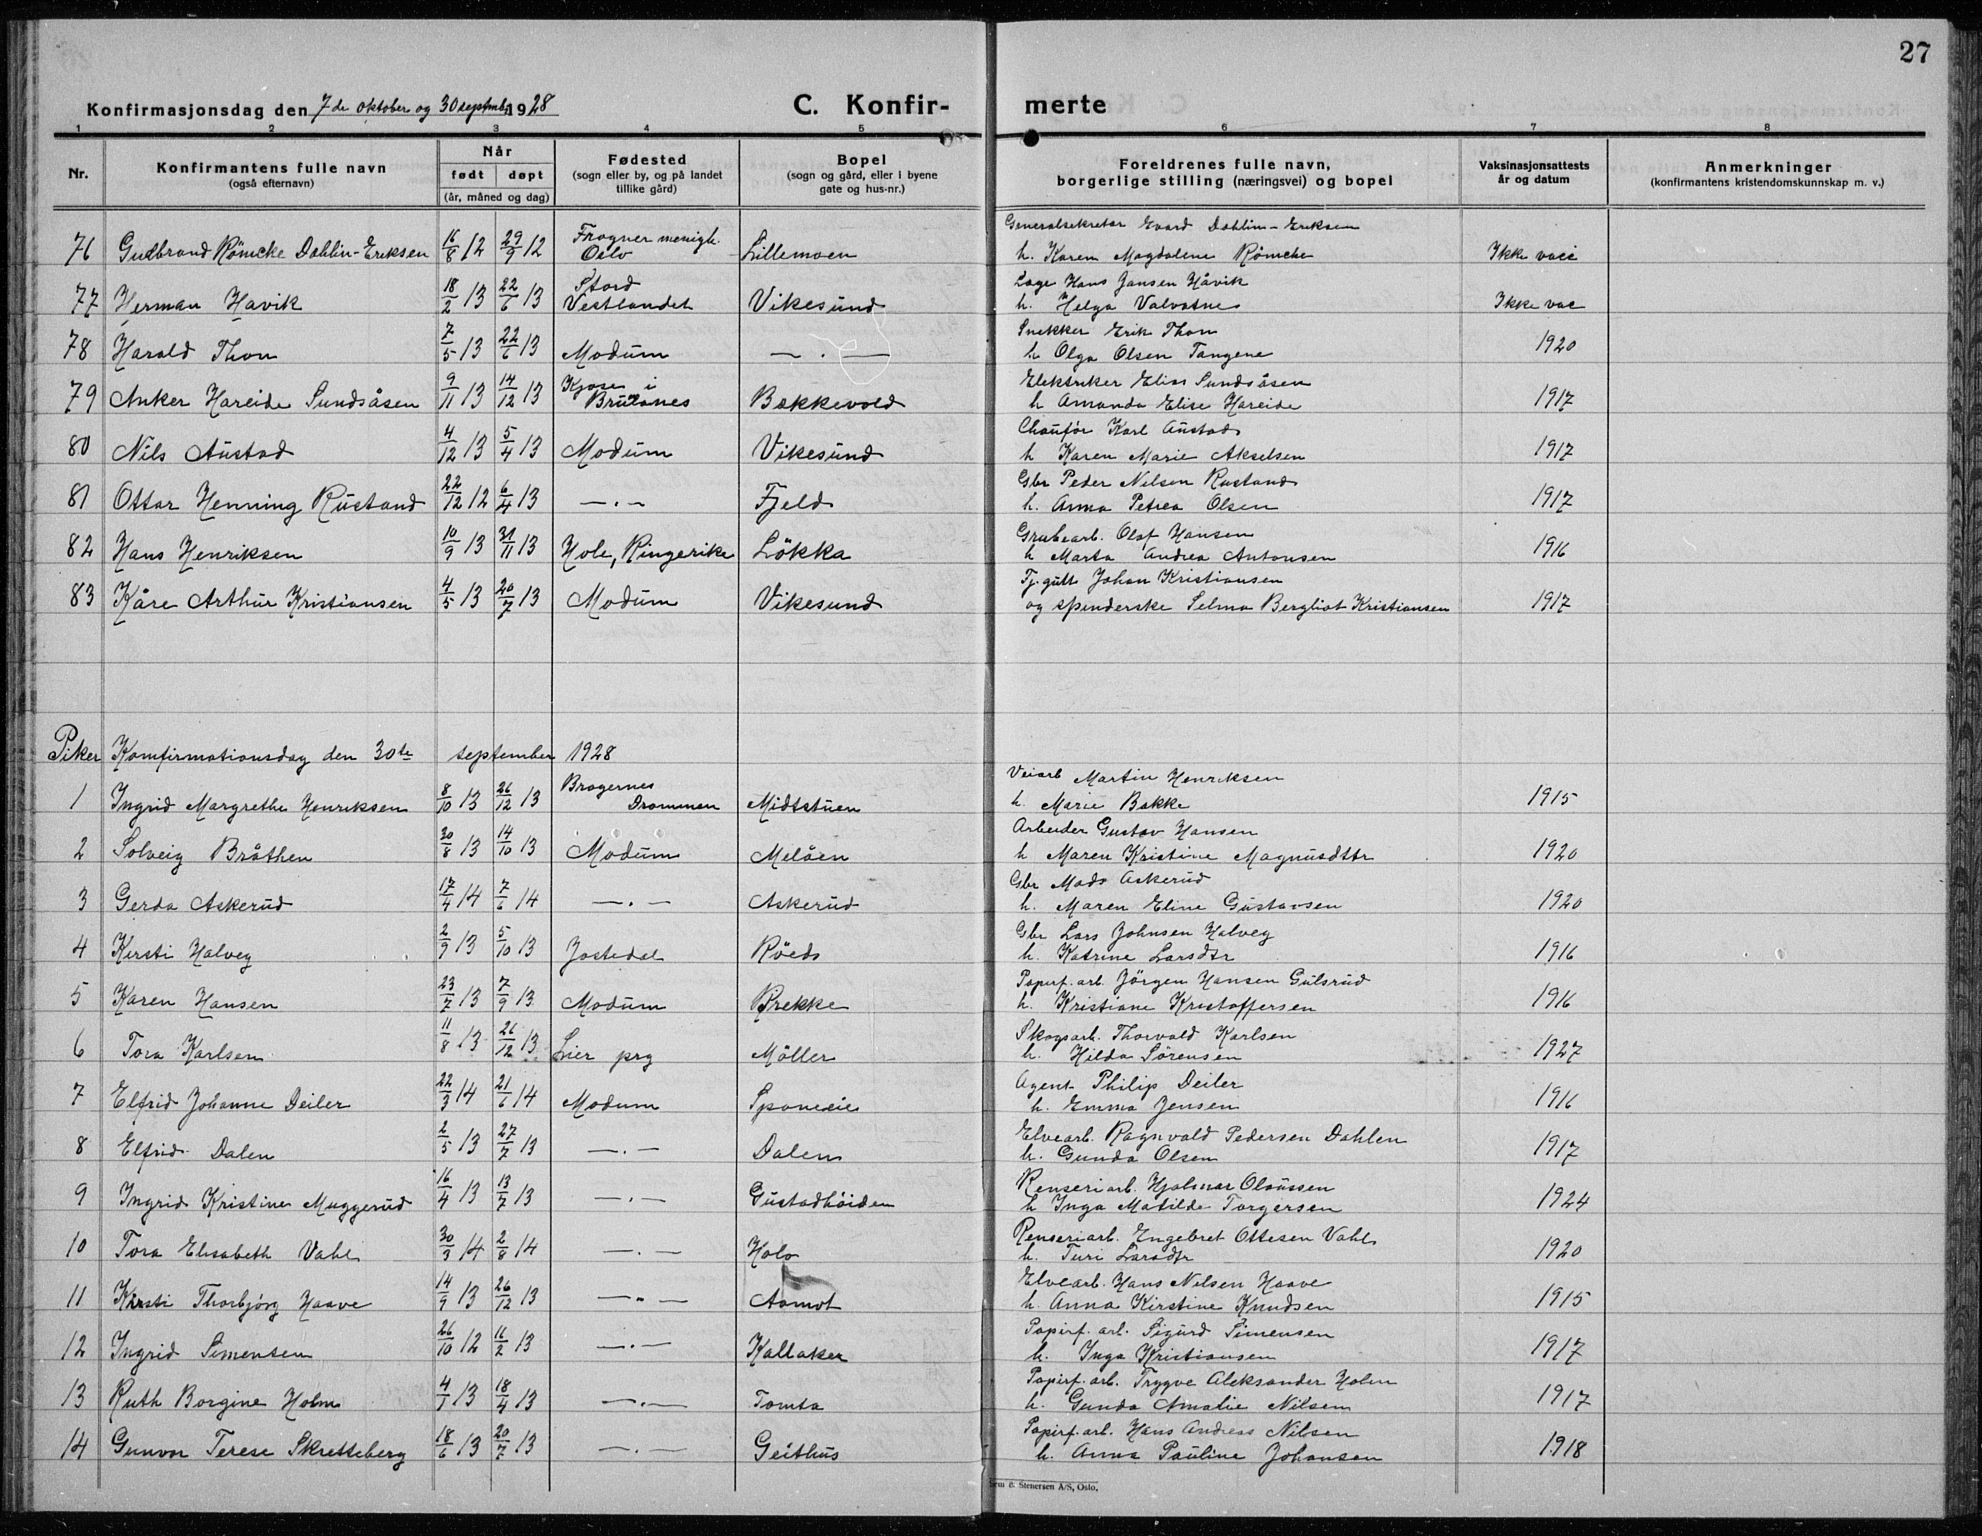 27
Konfirmasjonsdag den 7de oktober og 30 septmb. 1928
C. Konfir- merte
1 2 3 4 5 6 7 8
Nr.
Konfirmantens fulle navn
(også efternavn)
Når
født døpt
(år, måned og dag)
Fødested
(sogn eller by, og på landet
tillike gård)
Bopel
(sogn og gård, eller i byene
gate og hus-nr.)
Foreldrenes fulle navn,
borgerlige stilling (næringsvei) og bopel
Vaksinasjonsattests
år og datum
Anmerkninger
(konfirmantens kristendomskunnskap m. v.)
Frogner menigh. Generalsekretær Evard Dahlin-Eriksen
76 Gudbrand Römcke Dahlin-Eriksen 16/8 12 29/9 12 Oslo Lillemoen h. Karen Magdalene Römcke Ikke vacc
Stord Læge Hans Jansen Håvik
77 Herman Havik 18/2 13 22/6 13 Vestlandet Vikesund h. Helga Valvatne Ikke vac
Snekker Erik Thon
78 Harald Thon 7/5 13 22/6 13 Modum — . — h Olga Olsen Tangene 1920
Kjose i Elektriker Elias Sundsåsen
79 Anker Hareide Sundsåsen 9/11 13 14/12 13 Brulanes Bakkevold h Amanda Elise Hareide 1917
Chauför Karl Austad
80 Nils Austad 4/12 13 5/4 13 Modum Vikesund h Karen Marie Akselsen 1917
Gbr Peder Nilsen Rustand
81 Ottar Henning Rustand 22/12 12 6/4 13 — . — Fjeld h. Anna Petrea Olsen 1917
Grubearb. Olaf Hansen
82 Hans Henriksen 10/9 13 31/11 13 Hole, Ringerike Lökka h Marta Andrea Antonsen 1916
Tj.gutt Johan Kristiansen
83 Kåre Arthur Kristiansen 4/5 13 20/7 13 Modum Vikesund og spinderske Selma Bergliot Kristiansen 1917
Piker Komfirmationsdag den 30te september 1928
Bragernes Veiarb Martin Henriksen
1 Ingrid Margrethe Henriksen 8/10 13 26/12 13 Drammen Midtstuen h. Marie Bakke 1915
Arbeider Gustav Hansen
2 Solveig Bråthen 30/8 13 14/10 13 Modum Melåen h Maren Kristine Magnusdttr 1920
Gbr Mads Askerud
3 Gerda Askerud 17/4 14 7/6 14 — . — Askerud h. Maren Eline Gustavsen 1920
Gbr Lars Johnsen Halveg
4 Kersti Halveg 2/9 13 5/10 13 Jostedal Röed h. Katrine Larsdtr 1916
Papirf. arb. Jörgen Hansen Gulsrud
5 Karen Hansen 23/7 13 7/9 13 Modum Brekke h. Kristiane Kristoffersen 1916
Skogsarb. Thorvald Karlsen
6 Tora Karlsen 11/8 13 26/12 13 Lier prg Möller h. Hilda Sörensen 1927
Agent Philip Deiler
7 Elfrid Johanne Deiler 22/3 14 21/6 14 Modum Sponeeie h. Emma Jensen 1916
Elvearb. Ragnvald Pedersen Dahlen
8 Elfrid Dalen 2/5 13 27/7 13 — . — Dalen h. Gunda Olsen 1917
Renseriarb. Hjalmar Olaussen
9 Ingrid Kristine Muggerud 16/4 13 13/7 13 — . — Gustadhöiden h Inga Matilde Torgersen 1924
Renseriarb. Engebret Ottesen Vahl
10 Tora Elisabeth Vahl 30/3 14 2/8 14 — . — Holo h. Turi Larsdtr 1920
Elvearb. Hans Nilsen Haave
11 Kirsti Thorbjörg Haave 14/9 13 26/12 13 — . — Aamot h. Anna Kirstine Knudsen 1915
Papirf. arb. Sigurd Simensen
12 Ingrid Simensen 26/10 12 16/2 13 — . — Kallaker h. Inga Kristiansen 1917
Papirf. arb. Trygve Aleksander Holm
13 Ruth Borgine Holm 4/1 13 18/4 13 — . — Tomta h. Gunda Amalie Nilsen 1917
Papirf. arb. Hans Andreas Nilsen
14 Gunvor Terese Skretteberg 18/6 13 20/7 13 — . — Geithus h. Anna Pauline Johansen 1918
Sem & Stenersen A/S, Oslo.